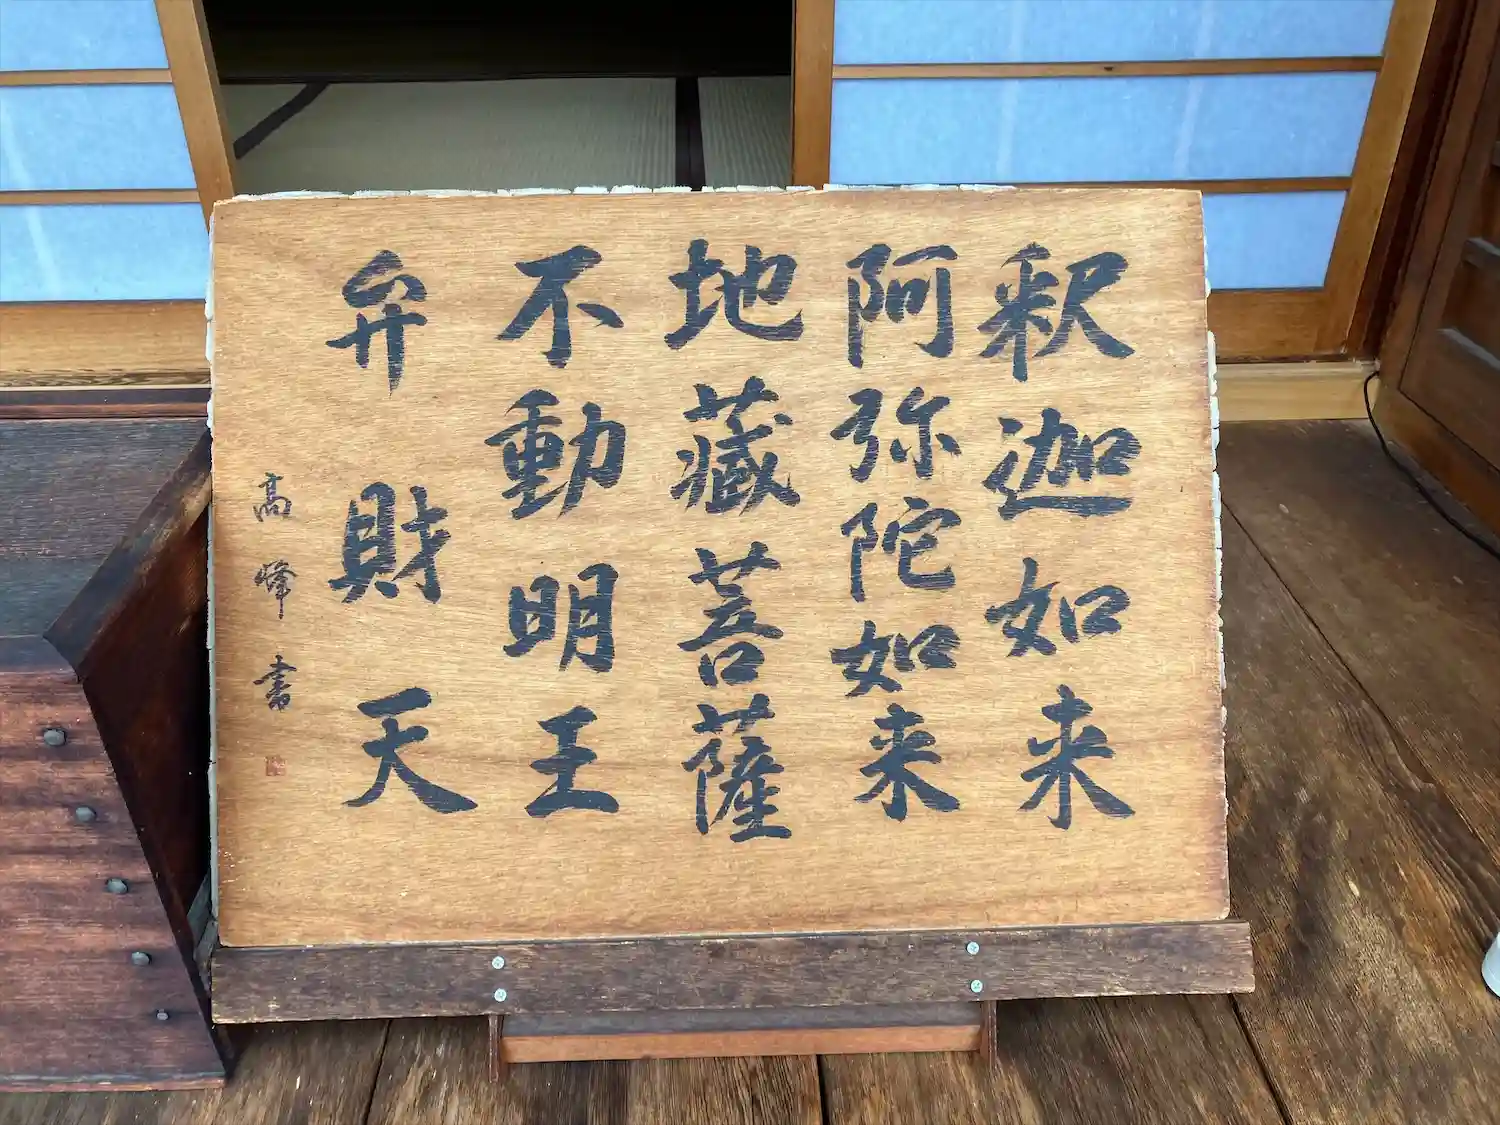 釈迦如来
阿弥陀如来
地蔵菩薩
不動明王
弁財天
高峰書